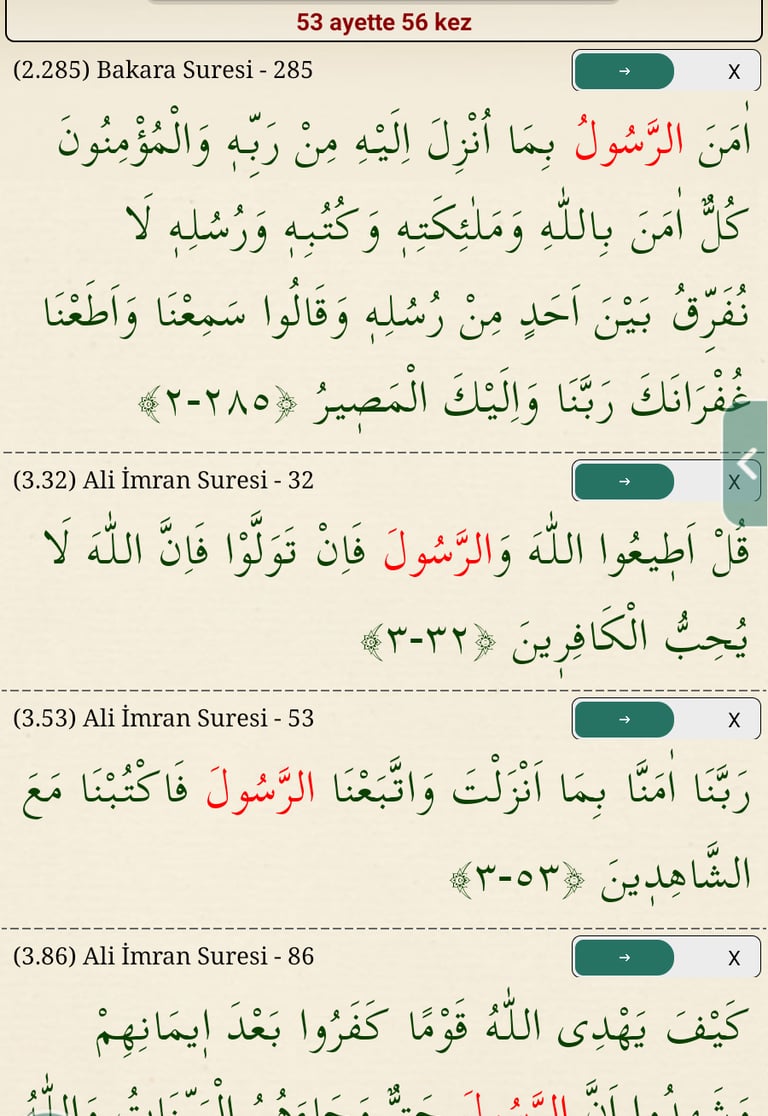 53 ayette 56 kez
(2.285) Bakara Suresi - 285
→ X
اٰمَنَ الرَّسُولُ بِمَا اُنْزِلَ اِلَيْهِ مِنْ رَبِّه۪ وَالْمُؤْمِنُونَ
كُلٌّ اٰمَنَ بِاللّٰهِ وَمَلٰئِكَتِه۪ وَكُتُبِه۪ وَرُسُلِه۪ لَا
نُفَرِّقُ بَيْنَ اَحَدٍ مِنْ رُسُلِه۪ وَقَالُوا سَمِعْنَا وَاَطَعْنَا
غُفْرَانَكَ رَبَّنَا وَاِلَيْكَ الْمَص۪يرُ ﴿٢٨٥-٢﴾
(3.32) Ali İmran Suresi - 32
→ X
قُلْ اَط۪يعُوا اللّٰهَ وَالرَّسُولَ فَاِنْ تَوَلَّوْا فَاِنَّ اللّٰهَ لَا
يُحِبُّ الْكَافِر۪ينَ ﴿٣٢-٣﴾
(3.53) Ali İmran Suresi - 53
→ X
رَبَّنَا اٰمَنَّا بِمَا اَنْزَلْتَ وَاتَّبَعْنَا الرَّسُولَ فَاكْتُبْنَا مَعَ
الشَّاهِد۪ينَ ﴿٥٣-٣﴾
(3.86) Ali İmran Suresi - 86
→ X
كَيْفَ يَهْدِى اللّٰهُ قَوْمًا كَفَرُوا بَعْدَ ا۪يمَانِهِمْ
وَشَهِدُوا اَنَّ الرَّسُولَ حَقٌّ وَجَاءَهُمُ الْبَيِّنَاتُ وَاللّٰهُ